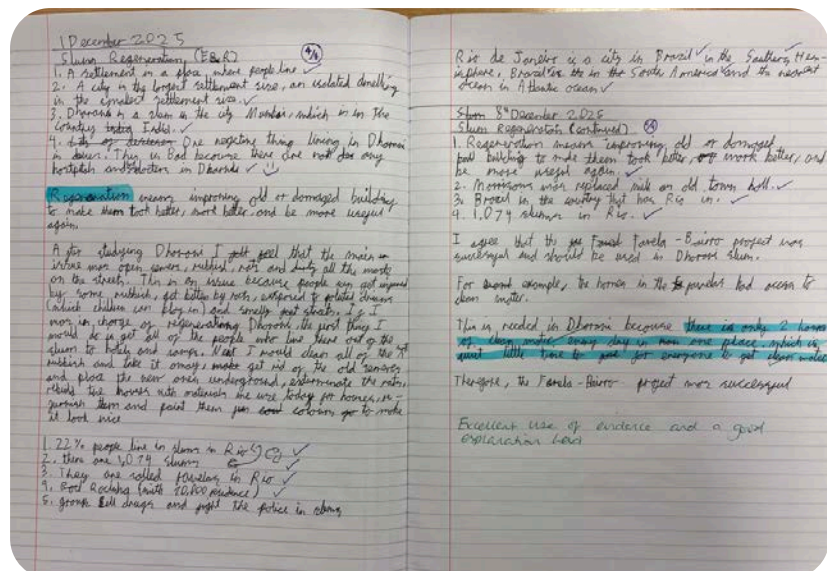 1 December 2025
Slum Regeneration (E&R) 4/4
1. A settlement is a place where people live
2. A city is the largest settlement size, an isolated dwelling
is the smallest settlement size.
3. Dharavi is a slum in the city Mumbai, which is in the
country India.
4. One negative thing living in Dharavi
is . This is Bad because there are not any
hospitals and doctors in Dharavi
Regeneration means improving old or damaged building
to make them look better, work better, and be more useful
again.
After studying Dharavi I feel that the main
issue was open sewers, rubbish, rats and all the waste
on the streets. This is an issue because people can get injured
by some rubbish, get bitten by rats, exposed to drains
(which children can play in) and smelly streets. If I
was in charge of regenerating Dharavi, the first thing I
would do is get all of the people who live there out of the
slum to hotels and . Next I would clean all of the
rubbish and take it away, get rid of the old sewers
and place the new ones underground, exterminate the rats,
rebuild the houses with materials we use today for homes, re-
furnish them and paint them colours to make
it look nice
1. 22% people live in slums in Rio
2. there are 1,074 slums
3. They are called favelas in Rio
4. Rocinha (with residence)
5. groups sell drugs and fight the police in slums
Rio de Janeiro is a city in Brazil in the Southern Hem-
isphere, Brazil is in South America and the nearest
ocean is Atlantic ocean
8th December 2025
Slum Regeneration (continued)
1. Regeneration means improving old or damaged
building to make them look better, work better, and
be more useful again.
2. Morrisons was replaced with an old town hall.
3. Brazil is the country that has Rio in.
4. 1,074 slums in Rio.
I agree that the Favela-Bairro project was
successful and should be used in Dharavi slum.
For example, the homes in the favelas had access to
clean water.
This is needed in Dharavi because there is only 2 hours
of clean water every day in one place, which is
quiet little time for everyone to get clean water
Therefore, the Favela-Bairro project was successful
Excellent use of evidence and a good
explanation